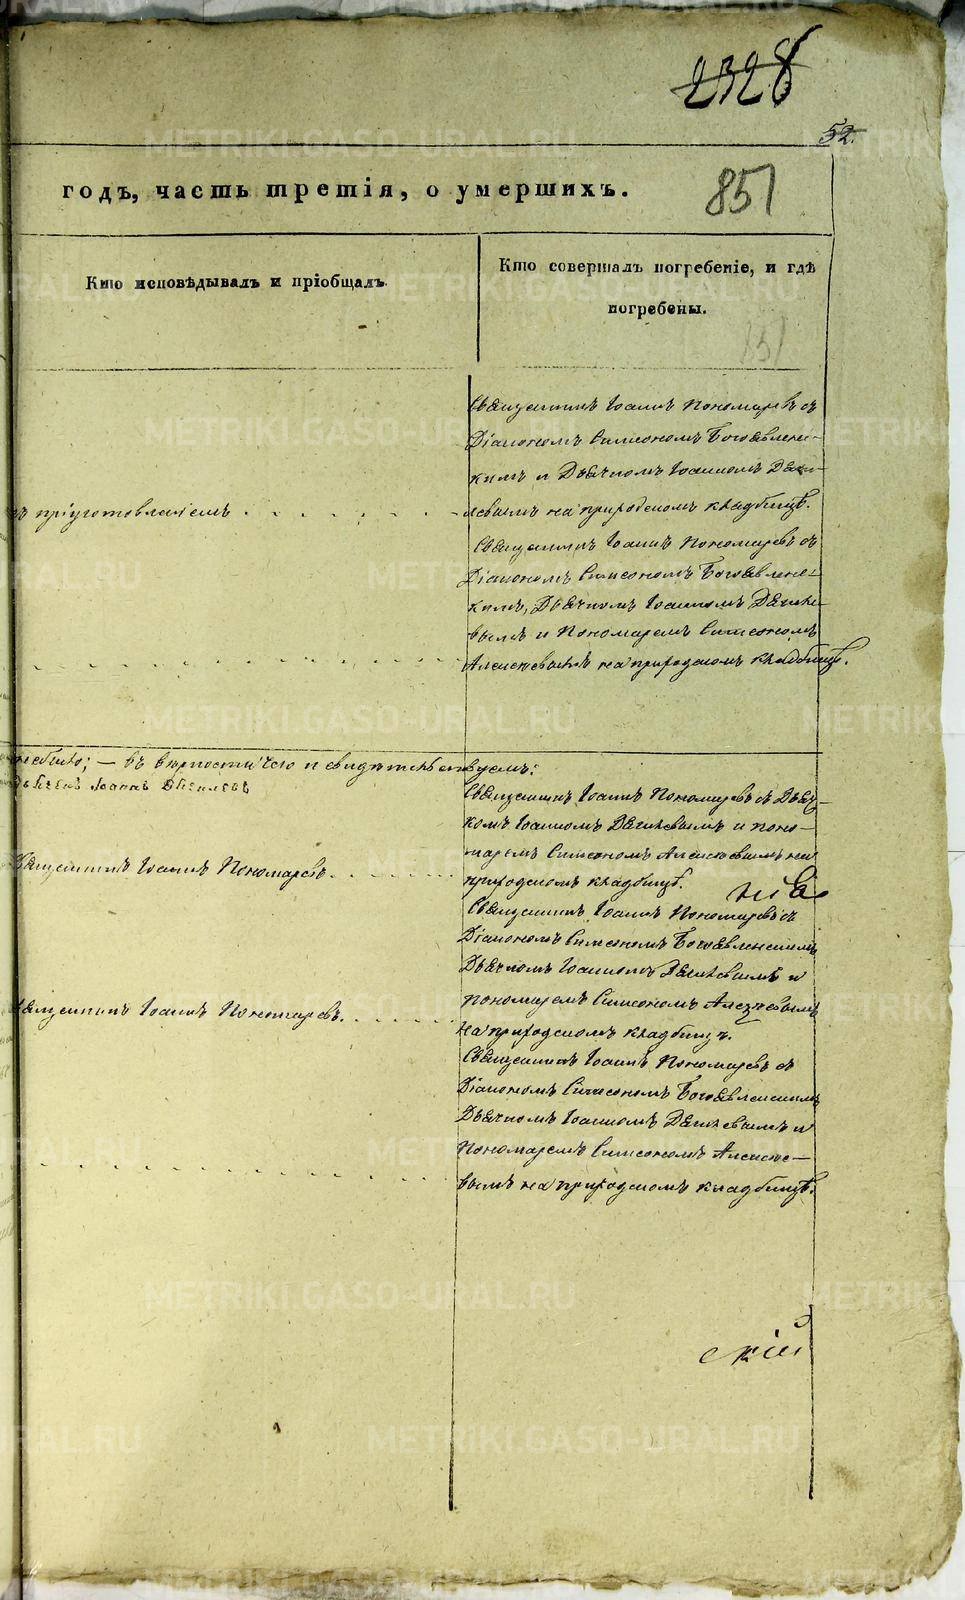 2328
52.
годъ, часть третія, о умершихъ.
851
Кто исповѣдывалъ и пріобщалъ.
Кто совершалъ погребеніе, и гдѣ
погребены.
Священникъ Іоаннъ Пономаревъ съ
Діакономъ Симеономъ Богоявленс-
кимъ и Дьячкомъ Іоанномъ
на приходскомъ кладбищѣ.
Священникъ Іоаннъ Пономаревъ съ
Діакономъ Симеономъ Богоявленс-
кимъ, Дьячкомъ Іоанномъ
вымъ и Пономаремъ Симеономъ
Алексѣевымъ на приходскомъ кладбищѣ.
небыло; — въ вѣрности чего и свидѣтельствуемъ:
Дьячекъ Іоаннъ
Священникъ Іоаннъ Пономаревъ съ Дьяч-
комъ Іоанномъ и поно-
маремъ Симеономъ Алексѣевымъ на
Священникъ Іоаннъ Пономаревъ
приходскомъ кладбищѣ.
Священникъ Іоаннъ Пономаревъ съ
Діакономъ Симеономъ Богоявленскимъ
Дьячкомъ Іоанномъ и
пономаремъ Симеономъ Алексѣевымъ
Священникъ Іоаннъ Пономаревъ.
на приходскомъ кладбищѣ.
Священникъ Іоаннъ Пономаревъ съ
Діакономъ Симеономъ Богоявленскимъ
Дьячкомъ Іоанномъ и
Пономаремъ Симеономъ Алексѣе-
вымъ на приходскомъ кладбищѣ.
скій
METRIKI.GASO-URAL.RU